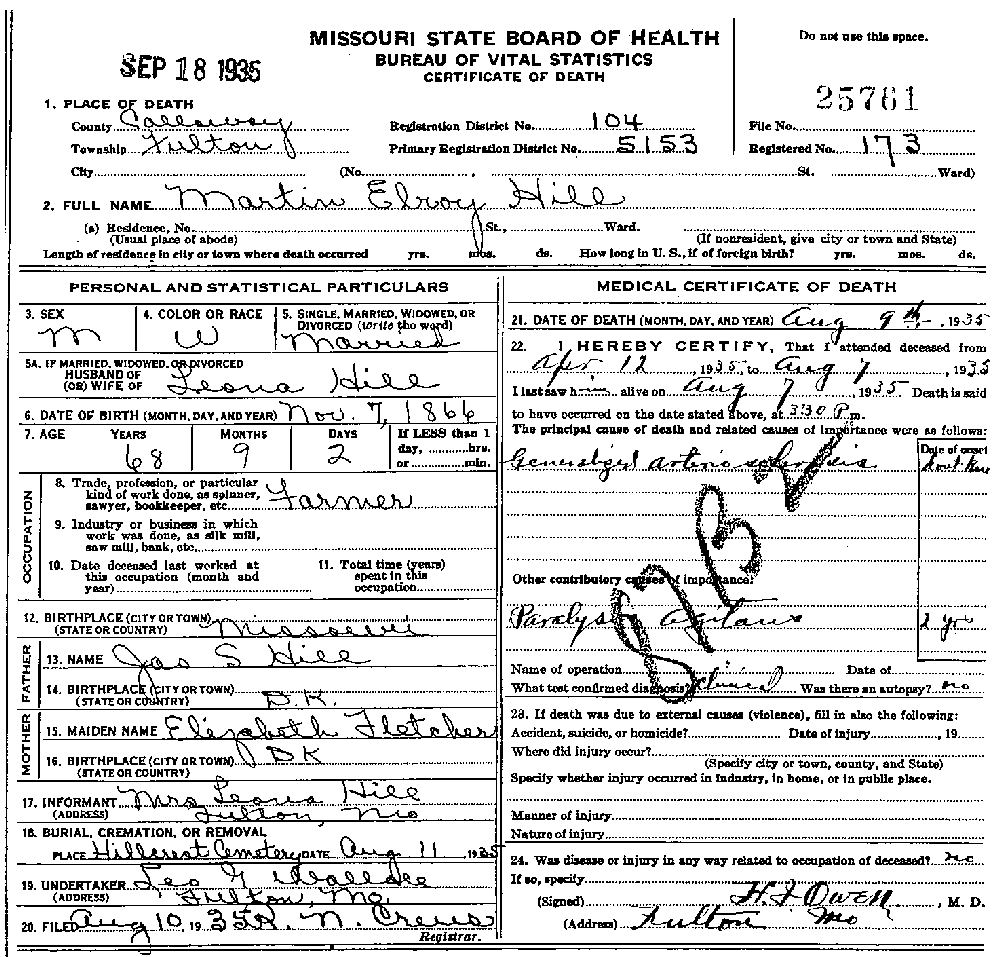 MISSOURI STATE BOARD OF HEALTH
BUREAU OF VITAL STATISTICS
CERTIFICATE OF DEATH
Do not use this space.
SEP 18 1935
25761
1. PLACE OF DEATH
County Callaway Registration District No. 104 File No.
Township Fulton Primary Registration District No. 5153 Registered No. 173
City (No. , St. Ward)
2. FULL NAME Martin Elroy Hill
(a) Residence, No. St., Ward.
(Usual place of abode) (If nonresident, give city or town and State)
Length of residence in city or town where death occurred yrs. mos. ds. How long in U. S., if of foreign birth? yrs. mos. ds.
PERSONAL AND STATISTICAL PARTICULARS
3. SEX M
4. COLOR OR RACE W
5. SINGLE, MARRIED, WIDOWED, OR DIVORCED (write the word) Married
5A. IF MARRIED, WIDOWED, OR DIVORCED
HUSBAND OF
(OR) WIFE OF Leona Hill
6. DATE OF BIRTH (MONTH, DAY, AND YEAR) Nov. 7, 1866
7. AGE YEARS MONTHS DAYS If LESS than 1
68 9 2 day, hrs.
or min.
OCCUPATION
8. Trade, profession, or particular
kind of work done, as spinner,
sawyer, bookkeeper, etc. Farmer
9. Industry or business in which
work was done, as silk mill,
saw mill, bank, etc.
10. Date deceased last worked at
this occupation (month and
year)
11. Total time (years)
spent in this
occupation
12. BIRTHPLACE (CITY OR TOWN)
(STATE OR COUNTRY) Missouri
FATHER
13. NAME Jas S Hill
14. BIRTHPLACE (CITY OR TOWN)
(STATE OR COUNTRY) D.K.
MOTHER
15. MAIDEN NAME Elizabeth Fletcher
16. BIRTHPLACE (CITY OR TOWN) DK
(STATE OR COUNTRY)
17. INFORMANT Mrs Leona Hill
(ADDRESS) Fulton, Mo
18. BURIAL, CREMATION, OR REMOVAL
PLACE Hillcrest Cemetery DATE Aug 11 1935
19. UNDERTAKER Leo G
(ADDRESS) Fulton, Mo.
20. FILED Aug 10, 1935 R. N. Crews
Registrar.
MEDICAL CERTIFICATE OF DEATH
21. DATE OF DEATH (MONTH, DAY, AND YEAR) Aug 9th, 1935
22. I HEREBY CERTIFY, That I attended deceased from
Apr 12, 1935, to Aug 7, 1935
I last saw h alive on Aug 7, 1935. Death is said
to have occurred on the date stated above, at 3:30 P.m.
The principal cause of death and related causes of importance were as follows:
Date of onset
Generalized arteriosclerosis
87B
Other contributory causes of importance:
Paralysis Agitans 2 yrs
Name of operation Date of
What test confirmed diagnosis? Clinical Was there an autopsy? no
23. If death was due to external causes (violence), fill in also the following:
Accident, suicide, or homicide? Date of injury , 19
Where did injury occur?
(Specify city or town, county, and State)
Specify whether injury occurred in industry, in home, or in public place.
Manner of injury
Nature of injury
24. Was disease or injury in any way related to occupation of deceased? no
If so, specify
(Signed) H. F Owen, M. D.
(Address) Fulton Mo